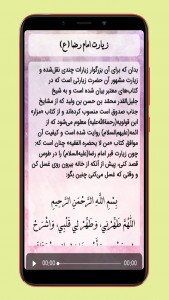 زیارت امام رضا (ع)
بدان که برای آن بزرگوار زیارات چندی نقل‌شده و
زیارت مشهور آن حضرت زیارتی است که در
کتاب‌های معتبر بیان شده است و به شیخ
جلیل‌القدر محمّد بن حسن بن ولید که از مشایخ
جناب صدوق است منسوب کرده‌اند و از «مزار»
ابن قولویه(رحمةالله‌علیه) معلوم می‌شود که از
ائمه(علیهم‌السلام) روایت شده است و کیفیت آن
موافق کتاب «من لا یحضره الفقیه» چنان است که:
چون زیارت قبر امام رضا(علیه‌السلام) را در طوس
قصد کنی، پیش از آنکه از خانه بیرون روی غسل کن
و وقتی که غسل می‌کنی چنین بگو:
بِسْمِ اللَّهِ الرَّحْمنِ الرَّحِیمِ
اللَّهُمَّ طَهِّرْنِی، وَطَهِّرْ لِی قَلْبِی، وَاشْرَحْ
00:00
00:00